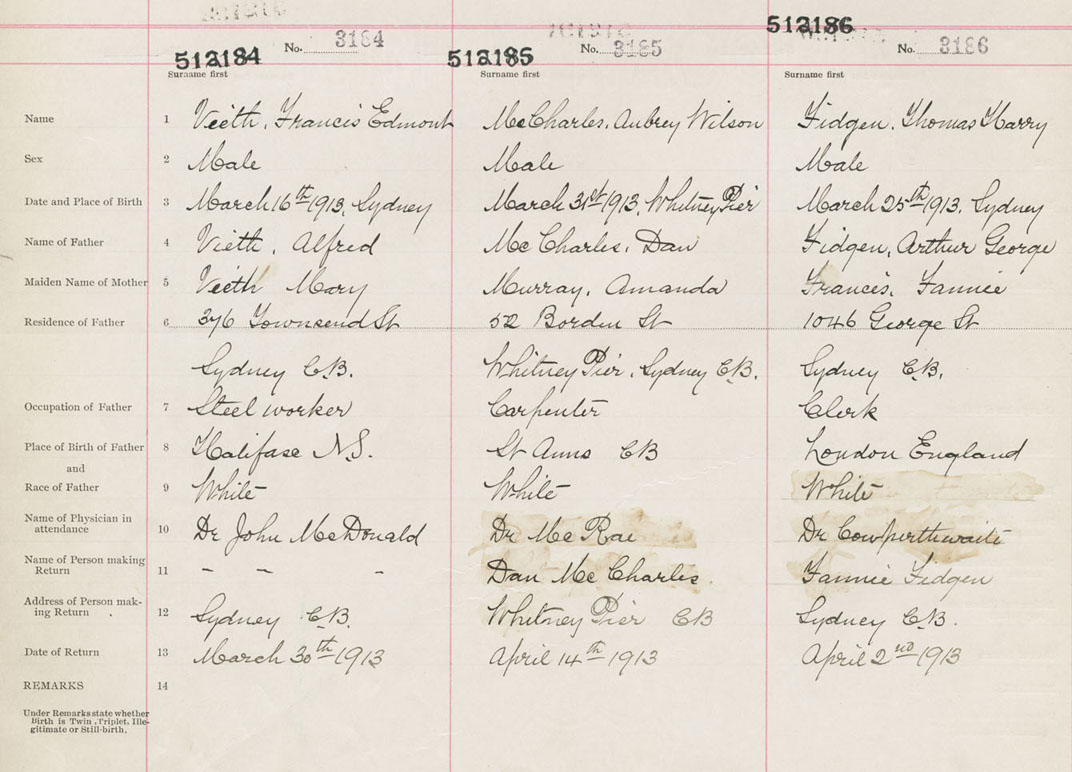 512184 No. 3184 512185 No. 3185 512186 No. 3186
Surname first Surname first Surname first
Name 1 Vieth, Francis Edmont McCharles, Aubrey Wilson Fidgen, Thomas Harry
Sex 2 Male Male Male
Date and Place of Birth 3 March 16th 1913, Sydney March 31st 1913, Whitney Pier March 25th 1913, Sydney
Name of Father 4 Vieth, Alfred McCharles, Dan Fidgen, Arthur George
Maiden Name of Mother 5 Vieth Mary Murray, Amanda Francis, Fannie
Residence of Father 6 376 Townsend St 52 Borden St 1046 George St
Sydney C.B. Whitney Pier, Sydney C.B. Sydney C.B.
Occupation of Father 7 Steel worker Carpenter Clerk
Place of Birth of Father 8 Halifax N.S. St Anns CB London England
and
Race of Father 9 White White White
Name of Physician in
attendance 10 Dr John McDonald Dr McRae Dr Cowperthwaite
Name of Person making
Return 11 - - - Dan McCharles. Fannie Fidgen
Address of Person mak-
ing Return 12 Sydney C.B. Whitney Pier CB Sydney C.B.
Date of Return 13 March 30th 1913 April 14th 1913 April 2nd 1913
REMARKS 14
Under Remarks state whether
Birth is Twin, Triplet, Ille-
gitimate or Still-birth.